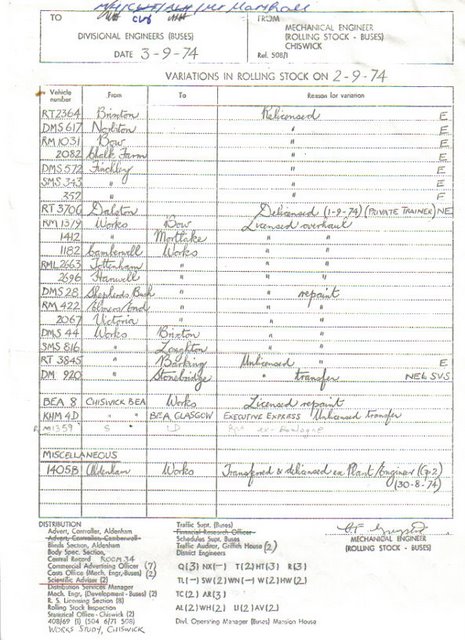 Marshall
CVB
TO
DIVISIONAL ENGINEERS (BUSES)
DATE 3-9-74
FROM
MECHANICAL ENGINEER
(ROLLING STOCK - BUSES)
CHISWICK
Rel. 508/1
VARIATIONS IN ROLLING STOCK ON 2-9-74
Vehicle number From To Reason for variation
RT2364 Brixton Relicensed E
DMS 617 Norbiton " E
RM 1031 Bow " E
2082 Chalk Farm " E
DMS 572 Finchley " E
SMS 343 " " E
352 " " E
RT 3700 Dalston Delicensed (1-9-74) (PRIVATE TRAINER) NE
RM 1379 Works Bow Licensed overhaul
1412 " Mortlake " "
1182 Camberwell Works " "
RML 2663 Tottenham " " "
2696 Hanwell " " "
DMS 28 Shepherds Bush " " repaint
RM 422 Elmers End " " "
2067 Victoria " " "
DMS 44 Works Brixton " "
SMS 816 " Loughton " "
RT 3845 " Barking Unlicensed " E
DM 920 " Stonebridge " transfer NEL SVS
BEA 8 CHISWICK BEA Works Licensed repaint
KHM 4D " " BEA GLASGOW EXECUTIVE EXPRESS Unlicensed transfer
RM1359
MISCELLANEOUS
1405B Aldenham Works Transferred & delicensed ex Plant/Engineer (Gp.2)
(30-8-74)
DISTRIBUTION
Advert, Controller, Aldenham
Advert, Controller, Camberwell
Blinds Section, Aldenham
Body Spec. Section,
Central Record ROOM 34
Commercial Advertising Officer (7)
Costs Office (Mech. Engr, Buses) (2)
Scientific Adviser (2)
Distribution Services Manager
Mech. Engr, (Development - Buses) (2)
R. S. Licensing Section (8)
Rolling Stock Inspection
Statistical Office - Chiswick (2)
408/69 (1) (504 6/71 508)
WORKS STUDY, CHISWICK
Traffic Supt. (Buses)
Financial Research Officer
Schedules Supt. Buses
Traffic Auditor, Griffith House (2)
District Engineers
Q(3) NX(-) T(2) HT(3) R(3)
TL(-) SW(2) WN(-) W(2) HW(2)
TC(2) AR(3)
AL(2) WH(2) U(2) AV(2)
Divl. Operating Manager (Buses) Mansion House
MECHANICAL ENGINEER
(ROLLING STOCK - BUSES)